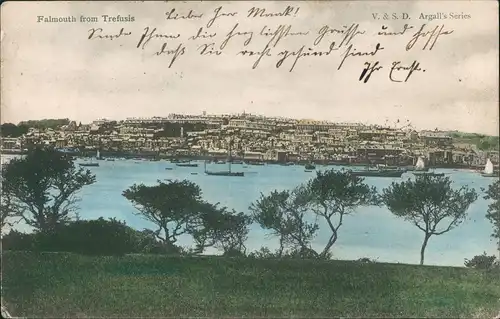 Falmouth from Trefusis
V. & S. D. Argall's Series
Lieber Herr Monk!
Sende Ihnen die herzlichsten Grüsse und hoffe
daß Sie recht gesund sind
Ihr Ernst.